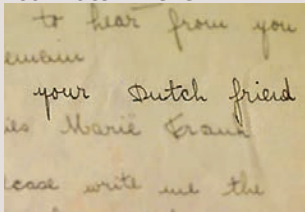 to hear from you
remain
your Dutch friend
ies Marie Frank
lease write me the